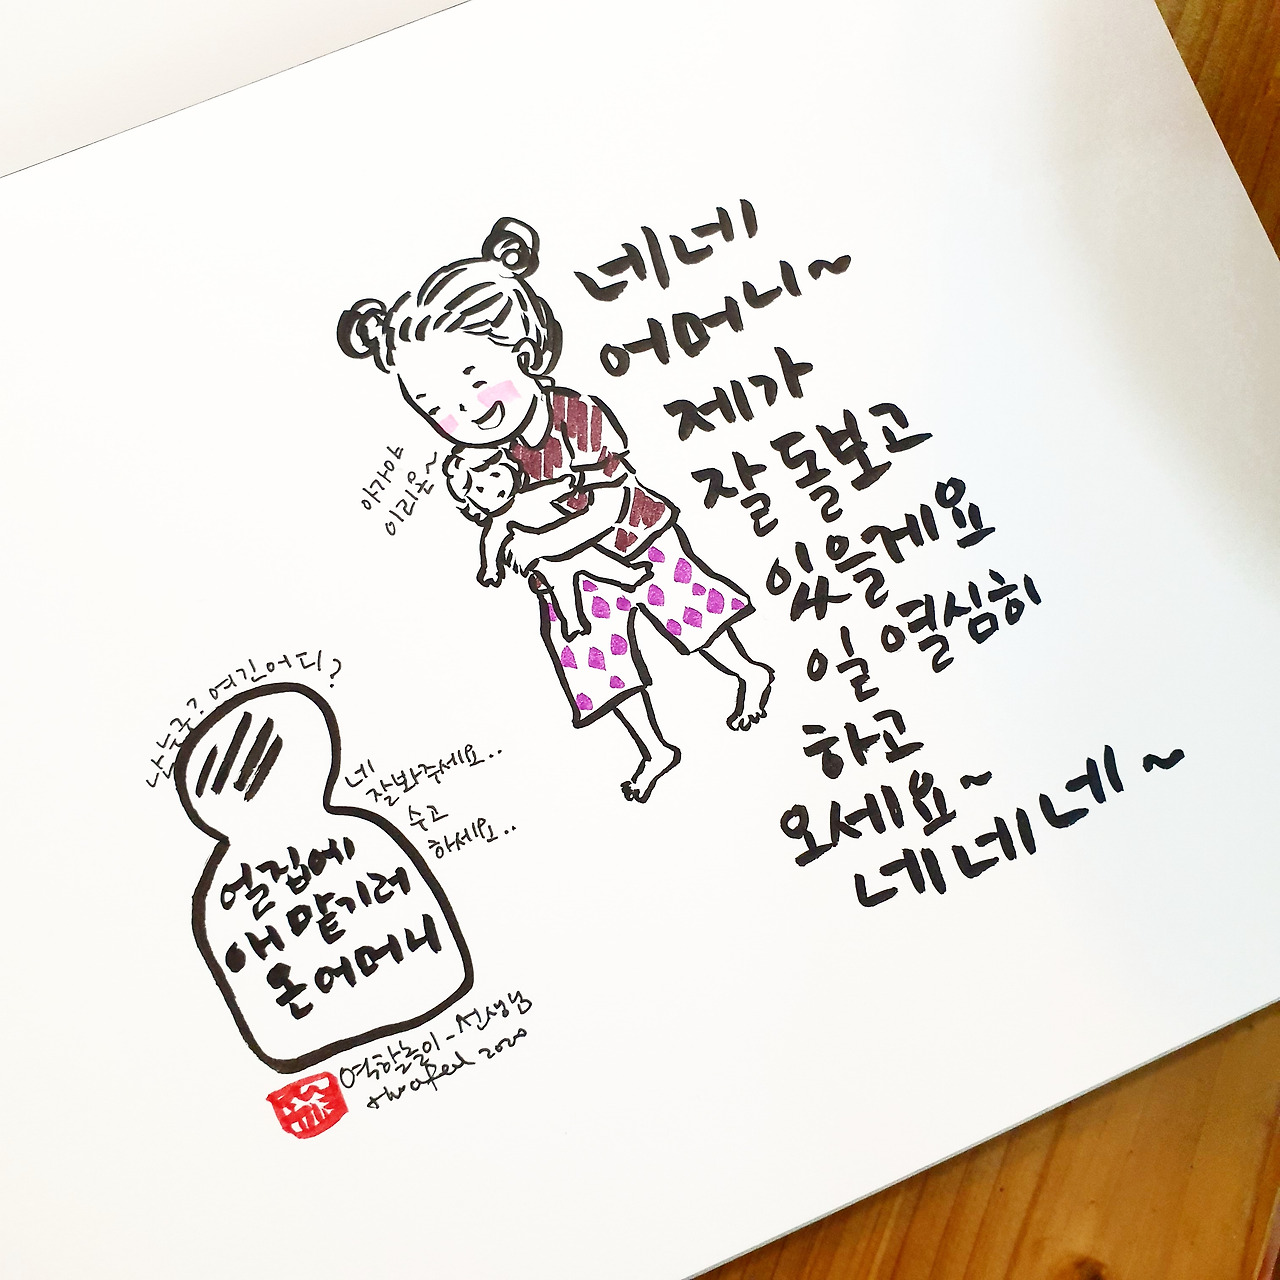 네네
어머니~
제가
잘 돌보고
있을게요
일 열심히
하고
오세요~
네 네 네 ~
아가야
이리온~
난 누구? 여긴 어디?
네
잘 봐주세요..
수고
하세요..
얼집에
애 맡기러
온 어머니
역할놀이-선생님
2020